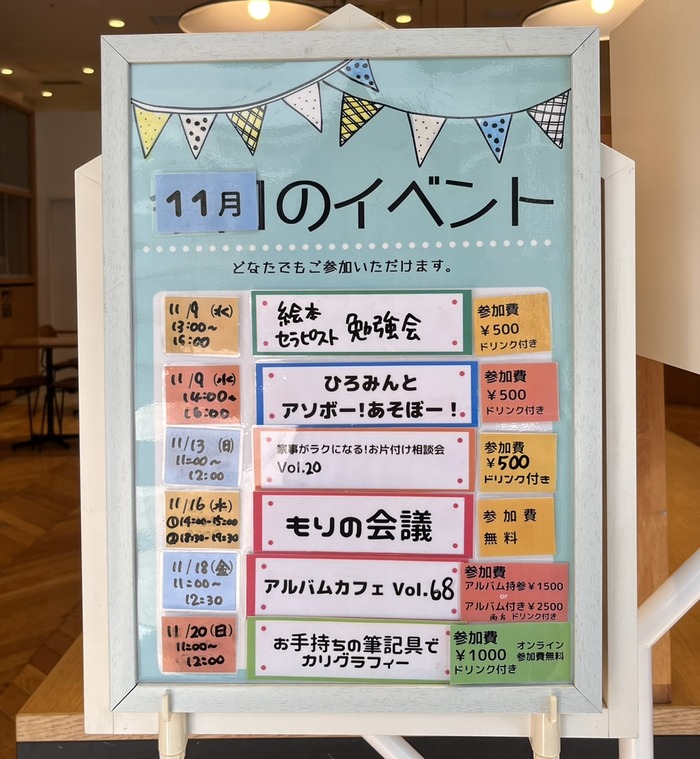 11月のイベント
どなたでもご参加いただけます。
11/9(水)
13:00~
15:00
絵本
セラピスト 勉強会
参加費
¥500
ドリンク付き
11/9(水)
14:00~
16:00
ひろみんと
アソボー!あそぼー!
参加費
¥500
ドリンク付き
11/13(日)
11:00~
12:00
家事がラクになる!お片付け相談会
Vol.20
参加費
¥500
ドリンク付き
11/16(水)
①14:00-15:00
②18:30-19:30
もりの会議
参加費
無料
11/18(金)
11:00~
12:30
アルバムカフェ Vol.68
参加費
アルバム持参¥1500
or
アルバム付き¥2500
両方 ドリンク付き
11/20(日)
11:00~
12:00
お手持ちの筆記具で
カリグラフィー
参加費
¥1000
ドリンク付き
オンライン
参加費無料